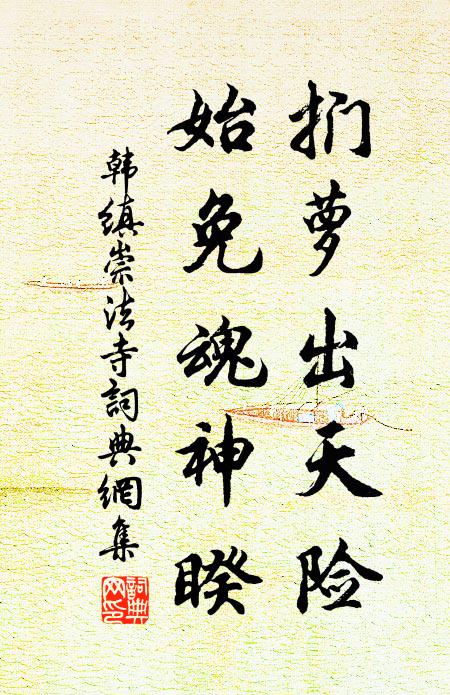 扪萝出天险
始免魂神睽
韩缜崇法寺詞典網集
詞典
网印